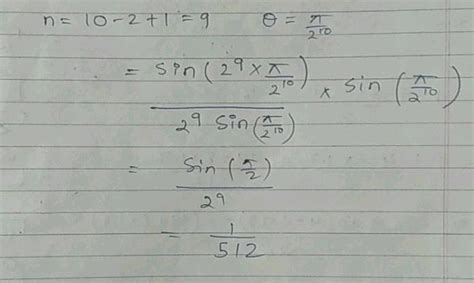 n = 10 - 2 + 1 = 9 θ = π/2^10
= sin(2^9 × π/2^10) / 2^9 sin(π/2^10) × sin(π/2^10)
= sin(π/2) / 2^9
= 1/512